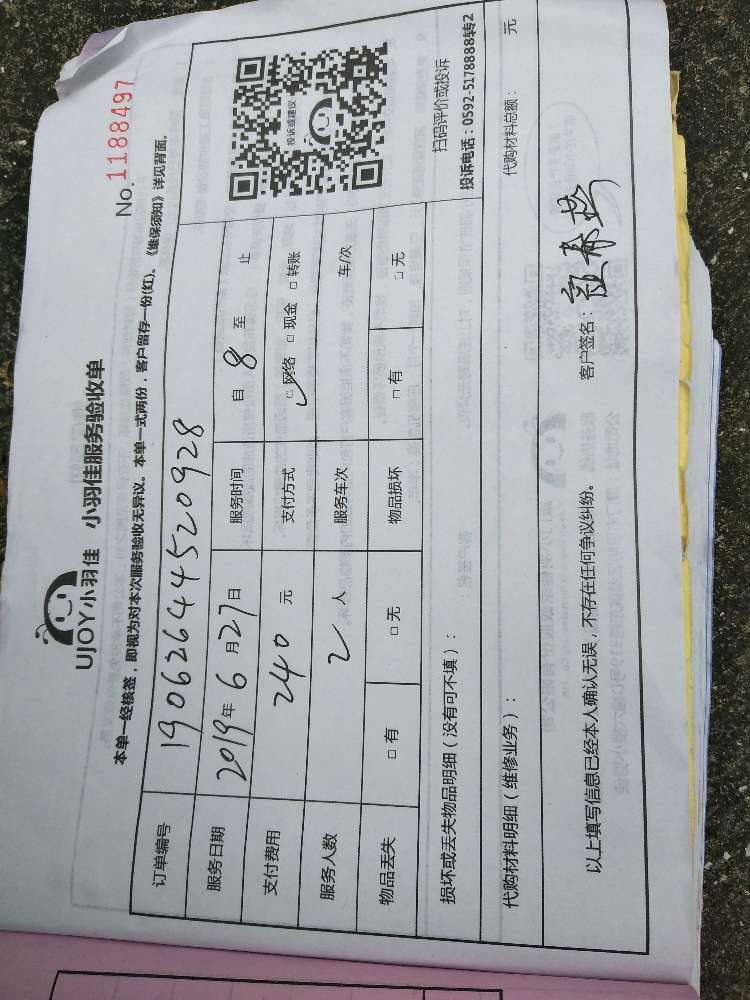 UJOY小羽佳 小羽佳服务验收单
No. 1188497
本单一经核签，即视为对本次服务验收无异议。本单一式两份，客户留存一份(红)。《维保须知》详见背面。
订单编号 190626445 20928
服务日期 2019年6月27日 服务时间 自 8 至 止
支付费用 240 元 支付方式 ☑网络 □现金 □转账
服务人数 2 人 服务车次 车/次
物品丢失 □有 □无 物品损坏 □有 □无
投诉或建议
扫码评价或投诉
投诉电话：0592-5178888转2
损坏或丢失物品明细（没有可不填）：
代购材料明细（维修业务）： 代购材料总额： 元
以上填写信息已经本人确认无误，不存在任何争议纠纷。 客户签名：